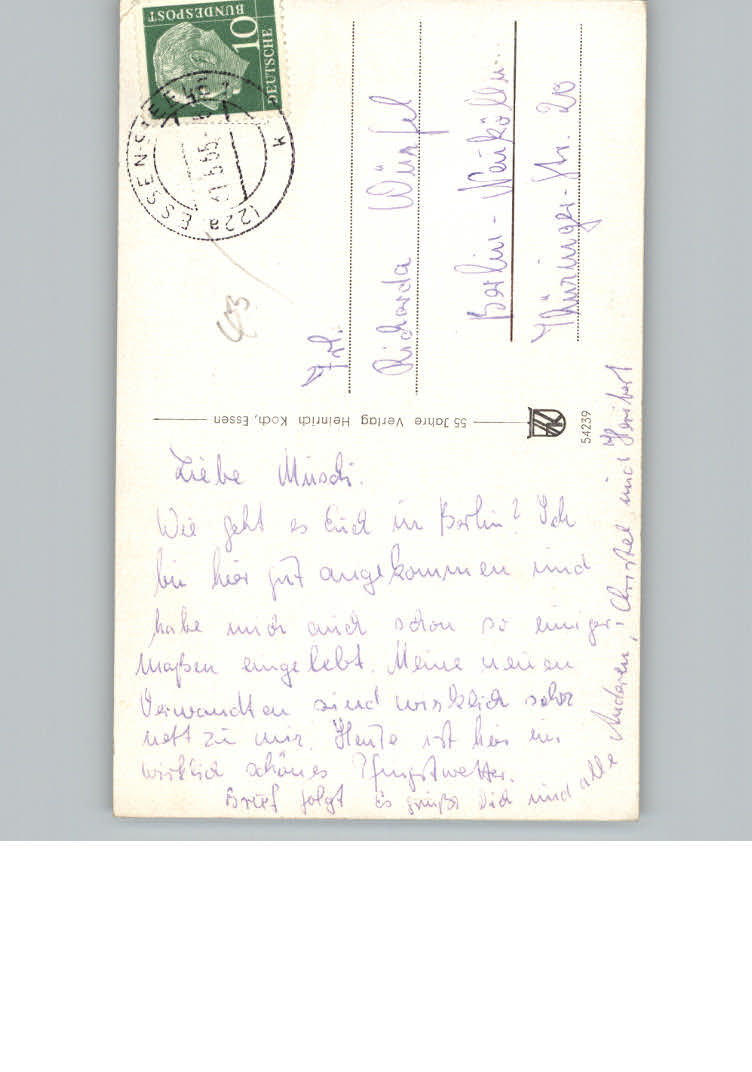 DEUTSCHE
BUNDESPOST
10
(22a) ESSEN-
k
Frl.
Richarda Würfel
Berlin-Neukölln
Thüringer-Str. 20
55 Jahre Verlag Heinrich Koch, Essen
54239
Liebe Muschi.
Wie geht es Euch in Berlin? Ich
bin hier gut angekommen und
habe mich auch schon so einiger
maßen eingelebt. Meine neuen
Verwandten sind wirklich sehr
nett zu mir. Heute ist hier ein
wirklich schönes Pfingstwetter.
Brief folgt Es grüßt Dich und alle Anderen, Christel und Heribert